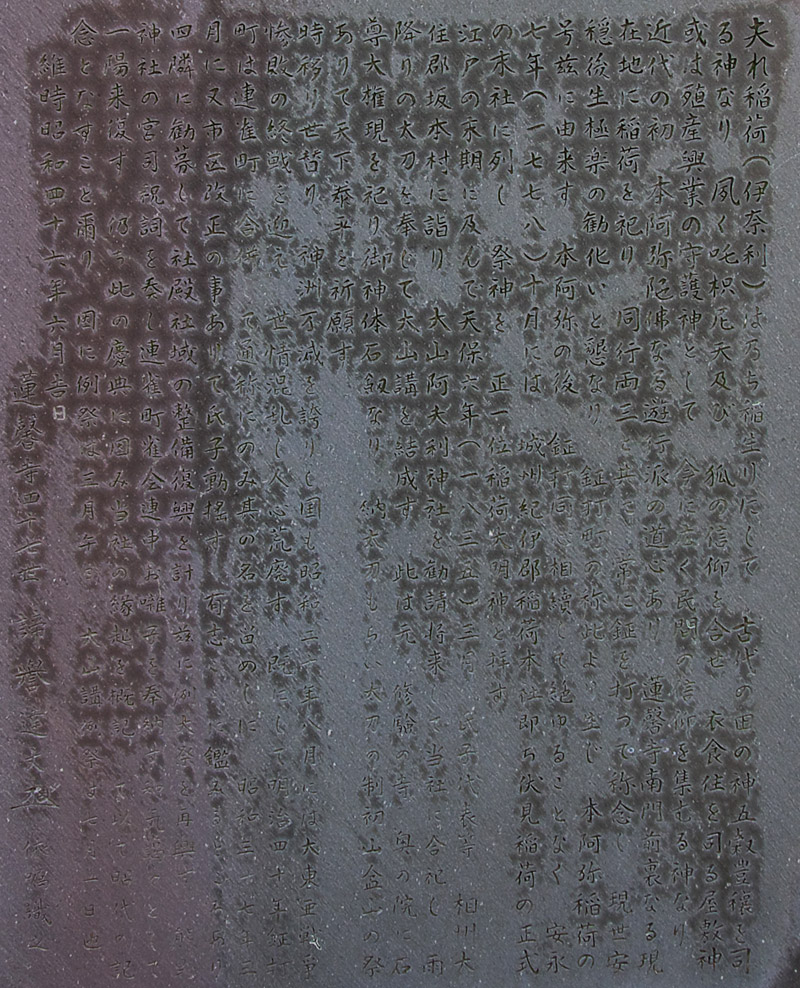 夫れ稲荷(伊奈利)は乃ち稲生りにして 古代の田の神五穀豊穣を司
る神なり 夙く吒枳尼天及び 狐の信仰を合せ 衣食住を司る屋敷神
或は殖産興業の守護神として 今に亡く民間の信仰を集むる神なり
近代の初 本阿弥陀佛なる遊行派の道心あり 蓮馨寺南門前裏なる現
在地に稲荷を祀り 同行両三と共に 常に鉦を打つて称念し 現世安
穏後生極楽の勧化いと懇なり 鉦打町の称此より生じ 本阿弥稲荷の
号茲に由来す 本阿弥の後 鉦打同心相続して絶ゆることなく 安永
七年(一七七八)十月には 城州紀伊郡稲荷本社即ち伏見稲荷の正式
の末社に列し 祭神を 正一位稲荷大明神と拝す
江戸の末期に及んで天保六年(一八三五)三月 氏子代表等 相州大
住郡坂本村に詣り 大山阿夫利神社を勧請将来して当社に合祀し 雨
降りの太刀を奉じて大山講を結成す 此は元 修験の寺 奥の院に石
尊大権現を祀り御神体石劔なり 納太刀もらい太刀の制初山盆山の祭
ありて天下泰平を祈願す
時移り世替り 神洲不滅を誇りし国も昭和二十年八月には大東亜戦争
惨敗の終戦を迎え 世情混乱し人心荒廃す 既にして明治四十年鉦打
町は連雀町に合併 て通称にのみ其の名を留めしに 昭和三十七年三
月に又市区改正の事ありて氏子動揺す 有志 に鑑 る ころあり
四隣に勧募して社殿社域の整備復興を計り茲に例大祭を再興す
神社の宮司祝詞を奏し連雀町雀会連中お囃子を奉納す
一陽来復す 仍つ此の慶典に因み当社の縁起を概記 て以て昭代の記
念となすこと爾り 因に例祭は三月午の 大山講 祭は七月一日也
維時昭和四十六年六月吉日
蓮馨寺四十七世 誉 大 識之